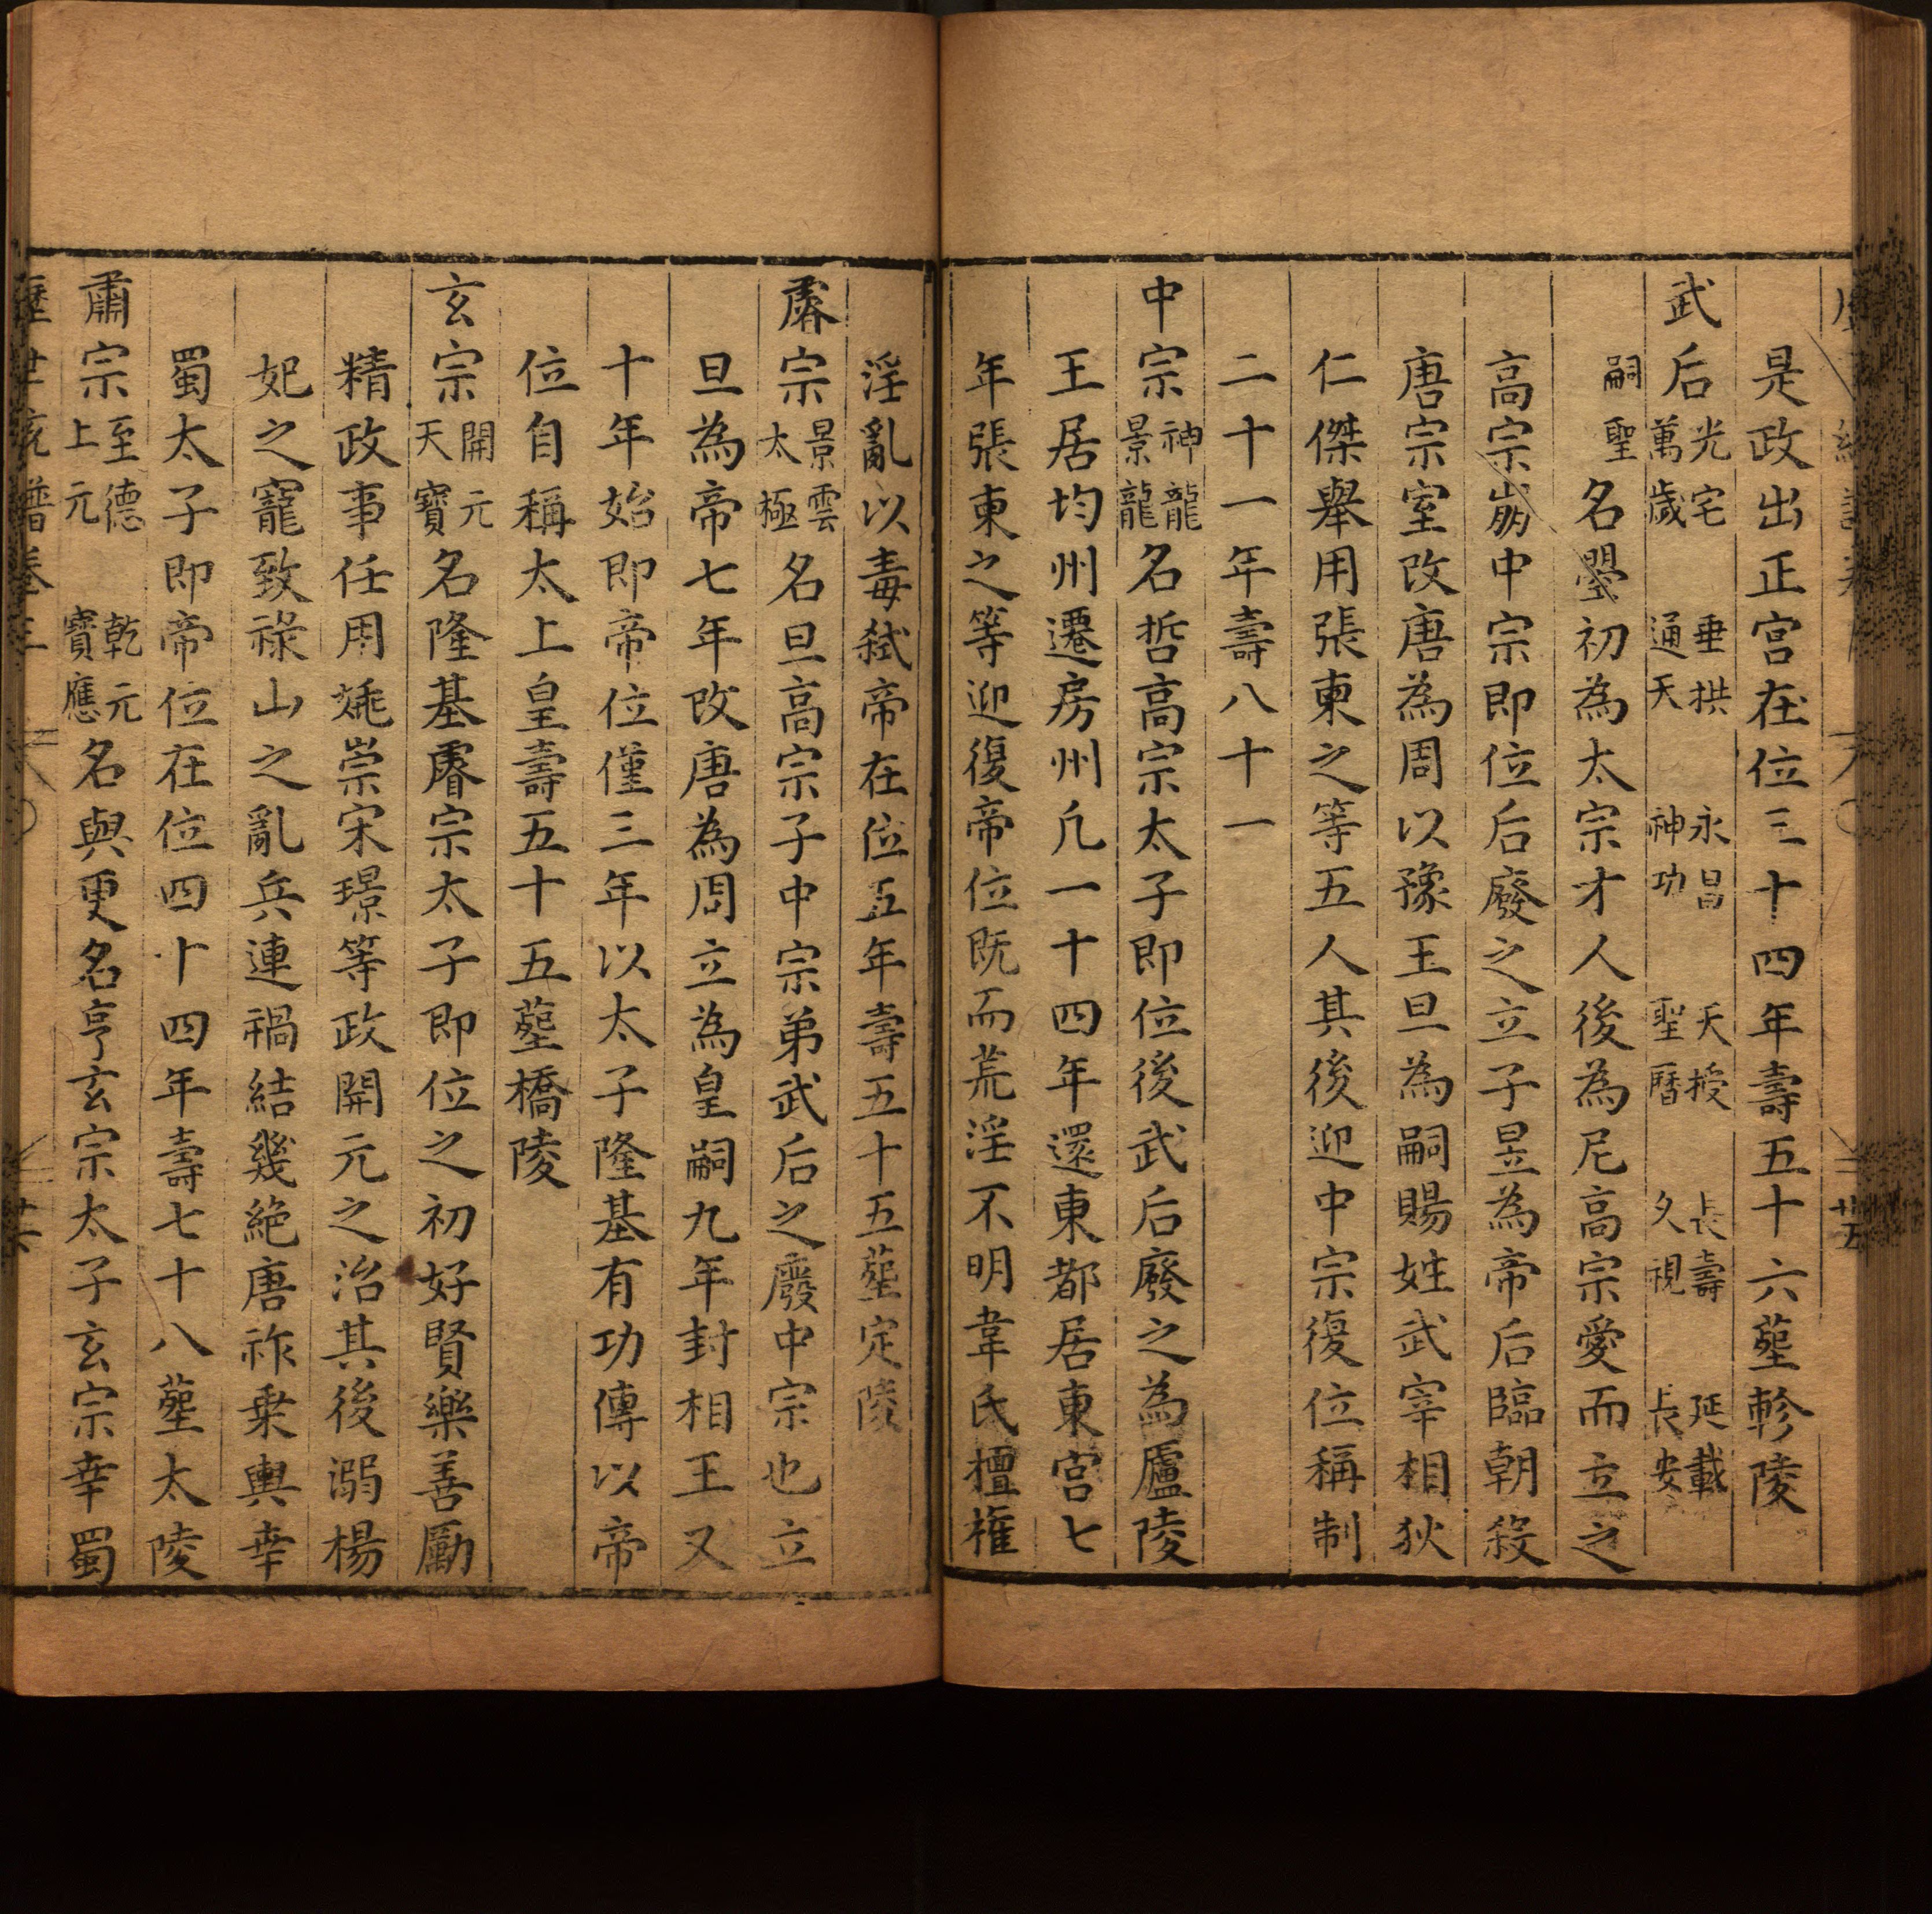 是政出正宫在位三十四年壽五十六塟乾陵
武后光宅 垂拱 永昌 天授 長壽 延載
萬歲 通天 神功 聖曆 久視 長安
嗣聖 名曌初為太宗才人後為尼高宗愛而立之
高宗崩中宗即位后廢之立子昱為帝后臨朝殺
唐宗室改唐為周以豫王旦為嗣賜姓武宰相狄
仁傑舉用張柬之等五人其後迎中宗復位稱制
二十一年壽八十一
中宗神龍景龍名哲高宗太子即位後武后廢之為廬陵
王居均州遷房州凢一十四年還東都居東宫七
年張東之等迎復帝位既而荒淫不明韋氏擅權
淫亂以毒弑帝在位五年壽五十五塟定陵
睿宗景雲太極名旦高宗子中宗弟武后之廢中宗也立
旦為帝七年改唐為周立為皇嗣九年封相王又
十年始即帝位僅三年以太子隆基有功傳以帝
位自稱太上皇壽五十五塟橋陵
玄宗開元天寶名隆基睿宗太子即位之初好賢樂善勵
精政事任用姚崇宋璟等政開元之治其後溺楊
妃之寵致祿山之亂兵連禍結幾絕唐祚乗輿幸
蜀太子即帝位在位四十四年壽七十八塟太陵
肅宗至德 乾元上元 寶應名與更名亨玄宗太子玄宗幸蜀